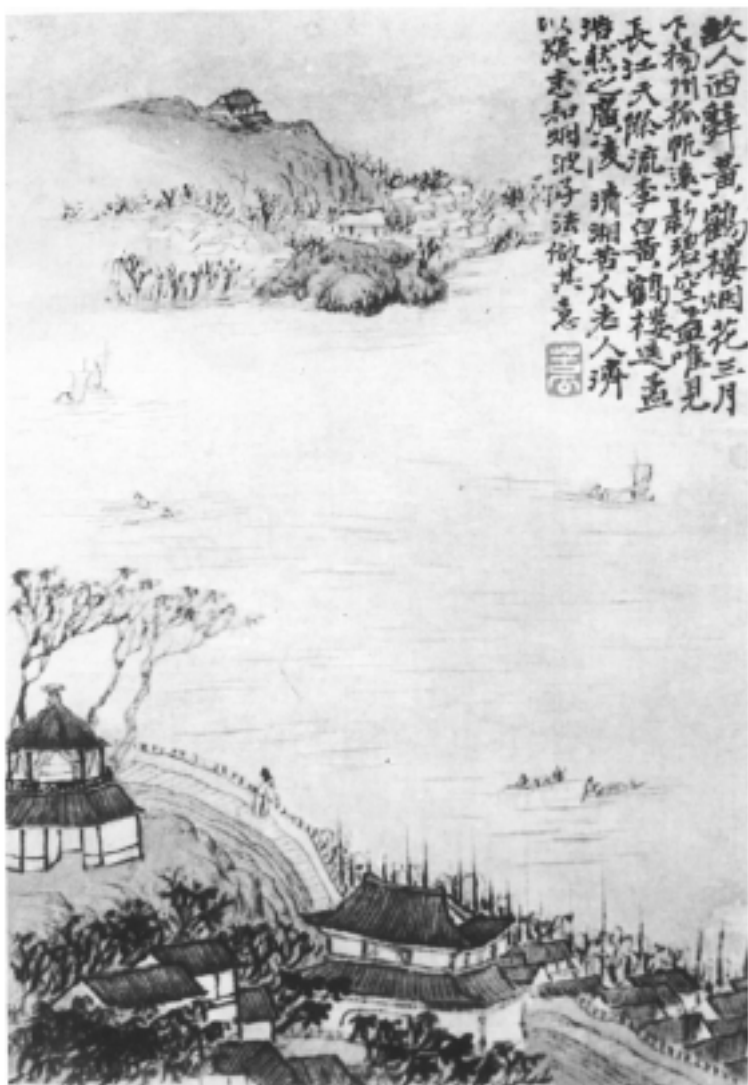 故人西辭黃鶴樓烟花三月
下楊州孤帆遠影碧空盡唯見
長江天際流李白黃鶴樓送孟
浩然之廣陵清湘苦瓜老人濟
以張志和烟波法倣其意